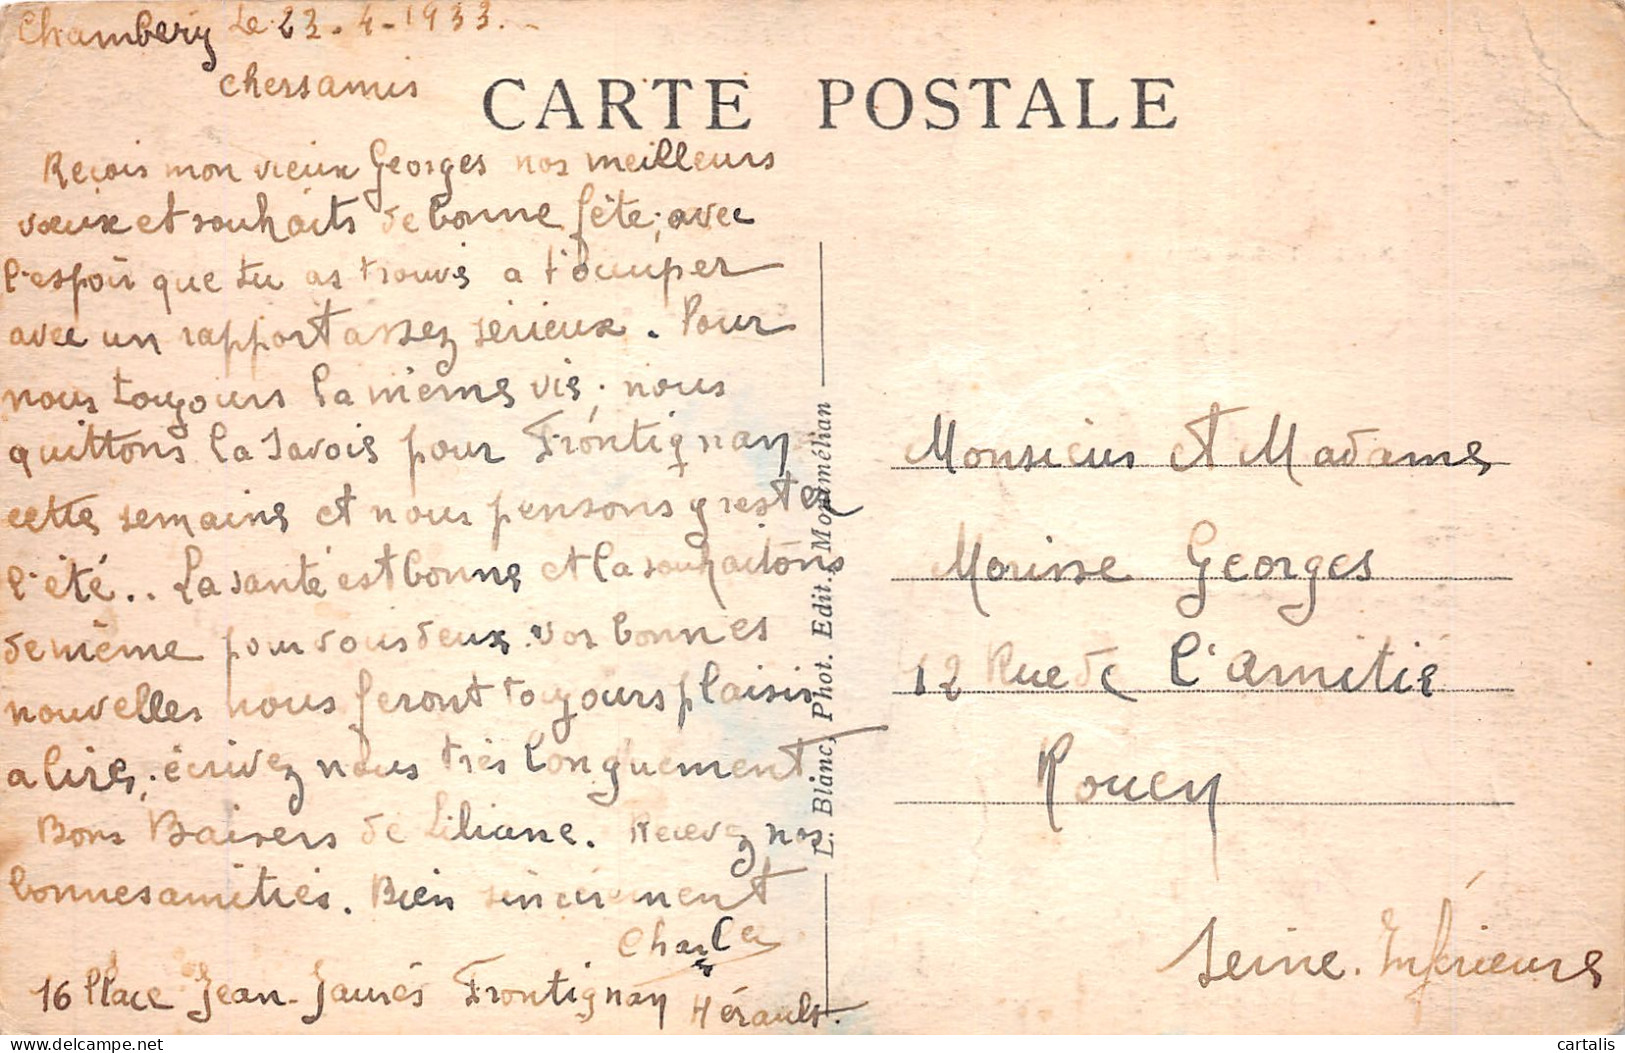 Chambery Le 23-4-1933.-
chersamis
CARTE POSTALE
Reçois mon vieux Georges nos meilleurs
vœux et souhaits de bonne fête; avec
l'espoir que tu as trouvé a t'occuper
avec un rapport assez serieux. Pour
nous toujours la même vie; nous
quittons la Savoie pour Frontignan
cette semaine et nous pensons y rester
l'été.. La santé est bonne et la souhaitons
de même pour vous deux. vos bonnes
nouvelles nous feront toujours plaisir
a lire; écrivez nous très longuement
Bons Baisers de Liliane. Recevez nos
bonnes amitiés. Bien sincèrement
Charles
16 Place Jean-Jaurès Frontignan
Hérault.
L. Blanc, Phot. Edit., Montmélian
Monsieur et Madame
Morisse Georges
12 Rue de l'Amitié
Rouen
Seine. Inférieure
cartalis
delcampe.net